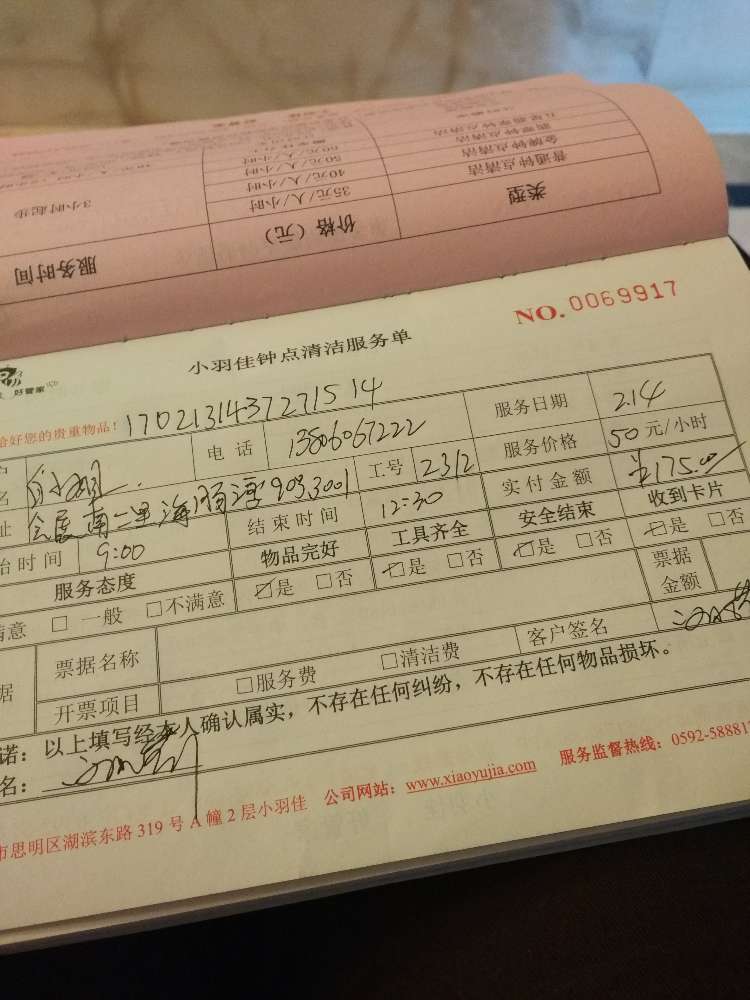 类型
价格（元）
服务时间
普通钟点清洁
35元/人/小时
3小时起步
金牌钟点清洁
40元/人/小时
50元/人/小时
60元/人/小时
NO. 0069917
小羽佳钟点清洁服务单
好管家
好您的贵重物品！ 170213143727151 4
名
电话
13806067222
服务日期
2.14
址
会展南二里海 903,3001
工号
2312
服务价格
50元/小时
始时间
9:00
结束时间
12:30
实付金额
¥175.00
服务态度
物品完好
工具齐全
安全结束
收到卡片
满意 □ 一般 □不满意
☑是 □否
☑是 □否
☑是 □否
☑是 □否
据
票据名称
票据金额
开票项目
□服务费 □清洁费
客户签名
诺：以上填写经本人确认属实，不存在任何纠纷，不存在任何物品损坏。
名：
市思明区湖滨东路 319 号 A 幢 2 层小羽佳 公司网站：www.xiaoyujia.com 服务监督热线：0592-588817